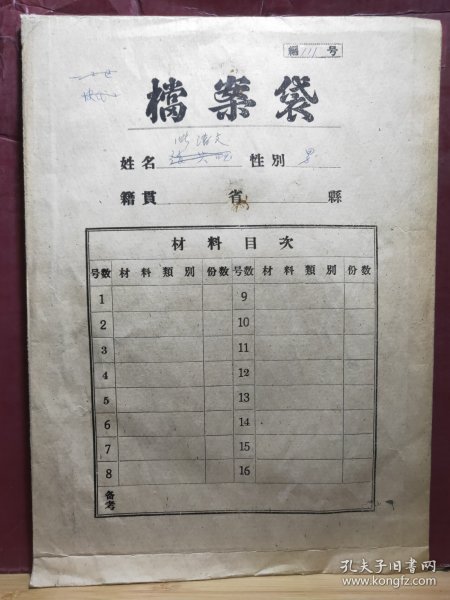 編 111 号
檔案袋
姓名 性別 男
籍貫 省 縣
材料目次
号数 材料類別 份数 号数 材料類別 份数
1 9
2 10
3 11
4 12
5 13
6 14
7 15
8 16
备考
孔夫子旧书网
www.kongfz.com